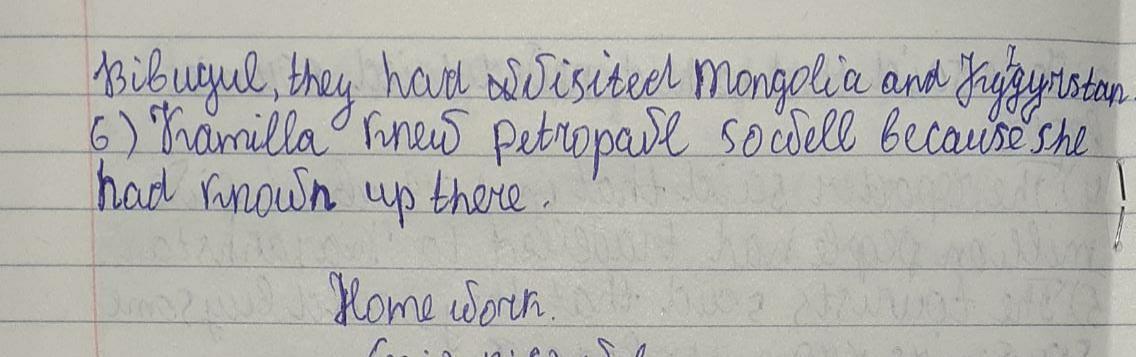 Bibugul, they had visited Mongolia and Kyrgyrstan.
6) Kamilla knew petropavl so well because she
had known up there.
Home work.